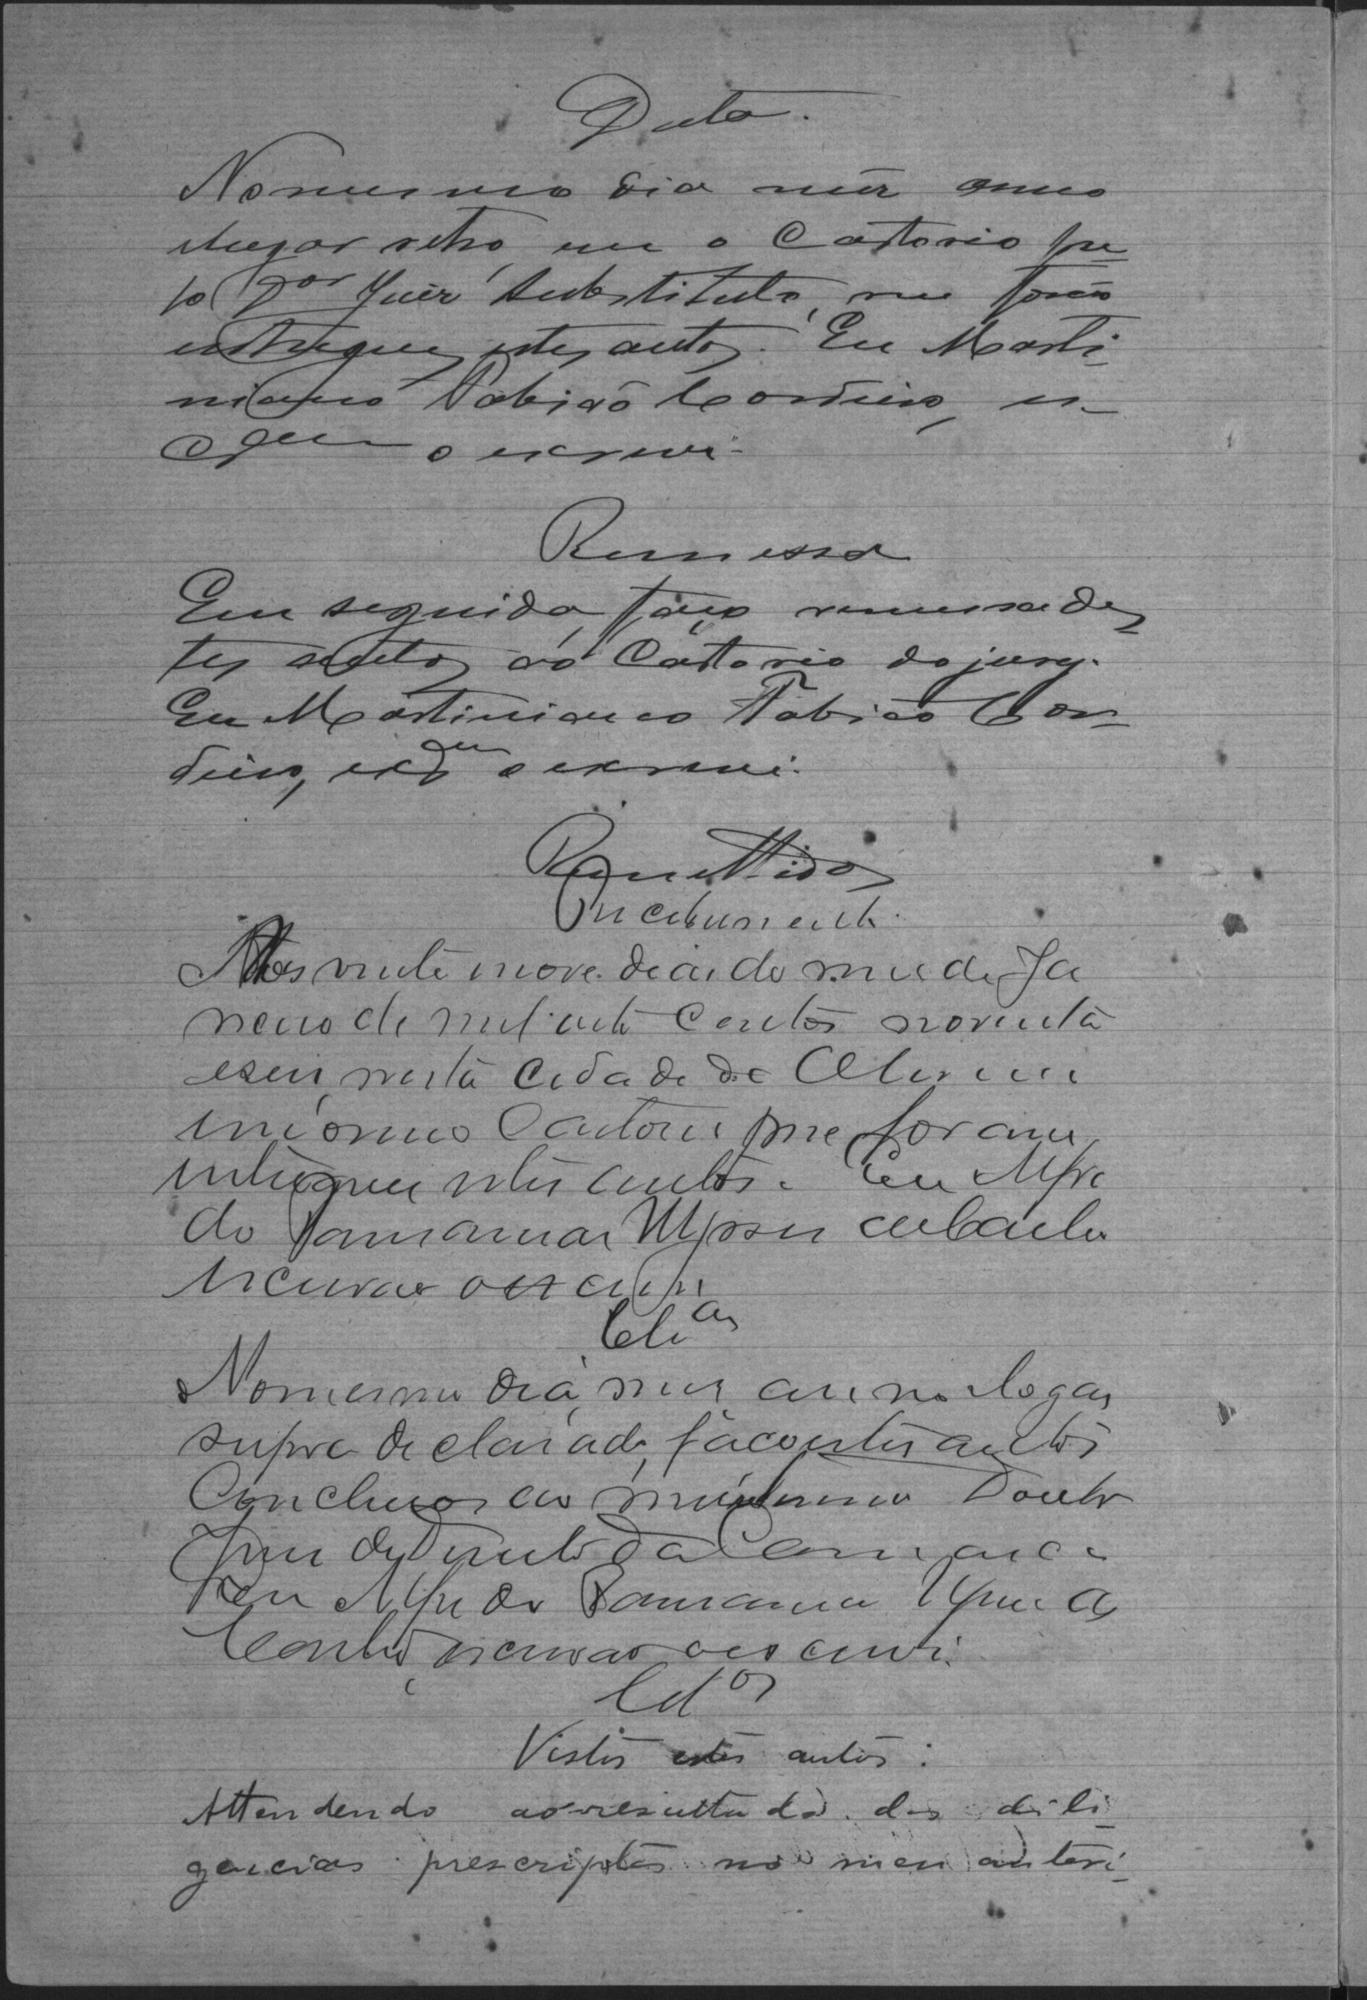 Data.
No mesmo dia mez anno
e lugar retro, em o Cartorio pe-
lo Dor Juiz Substituto, me forão
entregues estes autos. Eu Marti-
niano Fabião Cordeiro, es-
o escrevi.
Remessa
Em seguida, faço remessa des-
tes autos ao Cartorio do jury.
Eu Martiniano Fabião Cor-
deiro, o escrevi.
Remettidos
Recebimento.
Aos vinte nove dias do mez de Ja
neiro de mil oito centos noventa
e seis nesta Cidade de
em o meo Cartorio me foram
entregues estes autos. Eu Alfre
do
escrivão o escrevi.
Clsos
No mesmo dia, mez anno e logar
supra declarado, faço estes autos
Conclusos ao Doutor
Juiz de Direito da Comarca
Eu Alfredo
escrivão o escrevi.
Clsos
Vistos estes autos:
Attendendo ao resultado das dili-
gencias prescriptas no meu anteri-